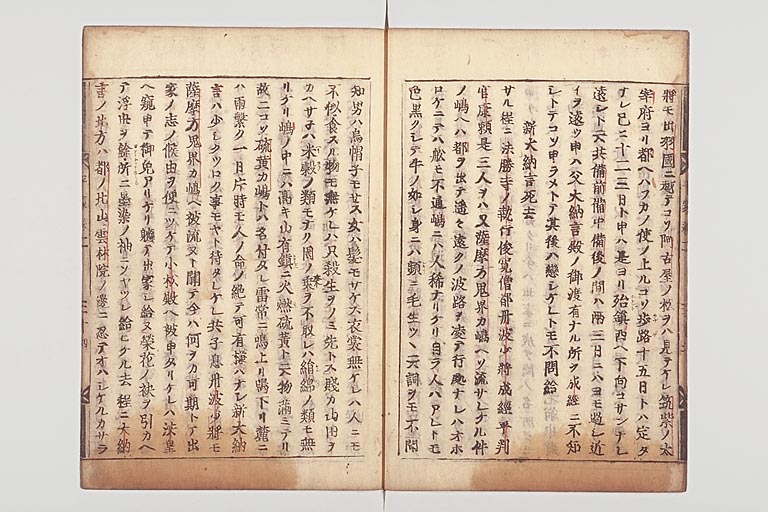 將モ出羽國ニ越テコソ阿古屋ノ松ヲハ見テケレ筑紫ノ太
宰府ヨリ都ヘハラカノ使ノ上ルコソ歩路十五日トハ定タ
ナレ已ニ十二三日ト申ハ是ヨリ殆鎮西ヘ下向コサンナレ
遠レト云共備前備中備後ノ間ハ兩三日ニハヨモ過レ近
イヲ遠ウ申ハ父大納言殿ノ御渡有ナル所ヲ成經ニ不知
レトテコソ申ラメトテ其後ハ戀シケレトモ不問給
新大納言死去
サル程ニ法勝寺ノ執行俊寛僧都丹波少將成經平判
官康頼是三人ヲハ又薩摩方鬼界カ嶋ヘソ流サレケル件
ノ嶋ヘハ都ヲ出テ遥々遠クノ波路ヲ凌テ行処ナレハオホ
ロケニテハ舩モ不通嶋ニハ人稀ナリケリ自ラ人ハアレトモ
色黒クシテ牛ノ如シ身ニハ頻ニ毛生ツヽ云詞ヲモ不聞
知男ハ烏帽子モセス女ハ髪モサケス衣裳無ケレハ人ニモ
不似食スル物モ無ケレハ只殺生ヲノミ先トス賤カ山田ヲ
カヘサネハ米穀ノ類モナク園ノ桑ヲ不取レハ絹綿ノ類モ無
リケリ嶋ノ中ニハ高キ山有鎮ニ火燃硫黄ト云物満ミテリ
故ニコソ硫黄カ嶋トハ名付タレ雷常ニ鳴上リ鳴下リ麓ニ
ハ雨繁ク一日片時モ人ノ命ノ絶テ可有様ハナシ新大納
言ハ少シクツロク事モヤト待タレケレ共子息丹波少將モ
薩摩方鬼界カ嶋ヘ被流ヌト聞テ今ハ何ヲカ可期トテ出
家ノ志ノ候由ヲ便ニツケテ小松殿ヘ被申タリケレハ法皇
ヘ窺申テ御免アリケリ軈テ出家シ給ヌ榮花ノ袂ヲ引カヘ
テ浮世ヲ餘所ニ墨染ノ袖ニソヤツレ給ヒケル去程ニ大納
言ノ北方ハ都ノ北山雲林院ノ邊ニ忍テオハシケルカサラ